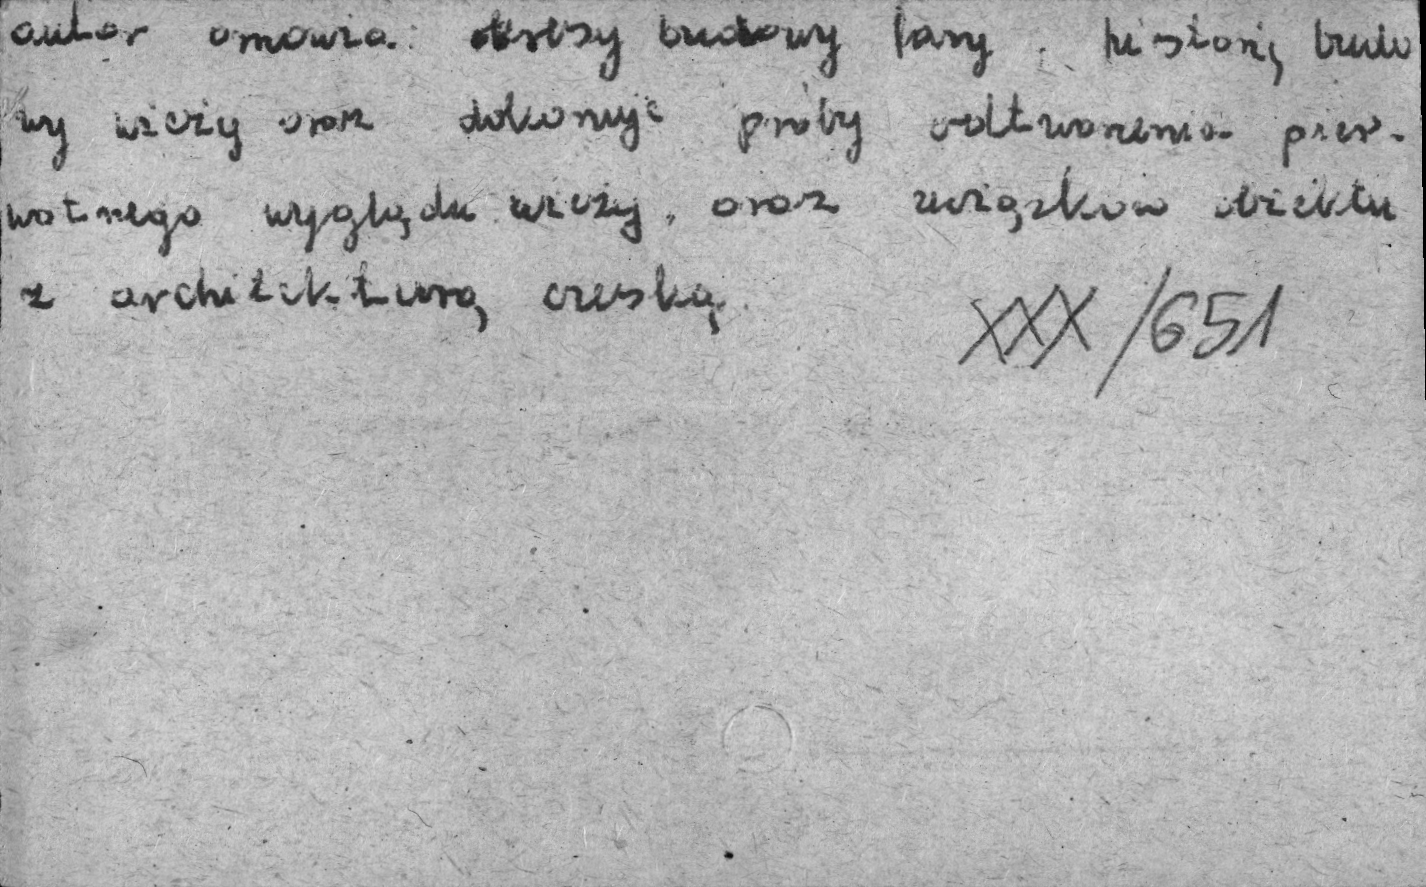 autor omawia: okresy budowy fary, historię budo
wy wieży oraz dokonuje próby odtworzenia pier-
wotnego wyglądu wieży, oraz związków obiektu
z architekturą czeską
XXX/651